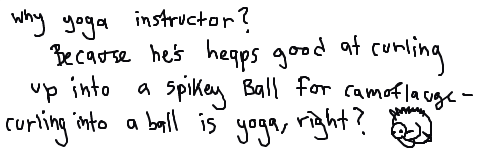 why yoga instructor?
Because he's heaps good at curling
up into a spikey Ball for camoflauge -
curling into a ball is yoga, right?